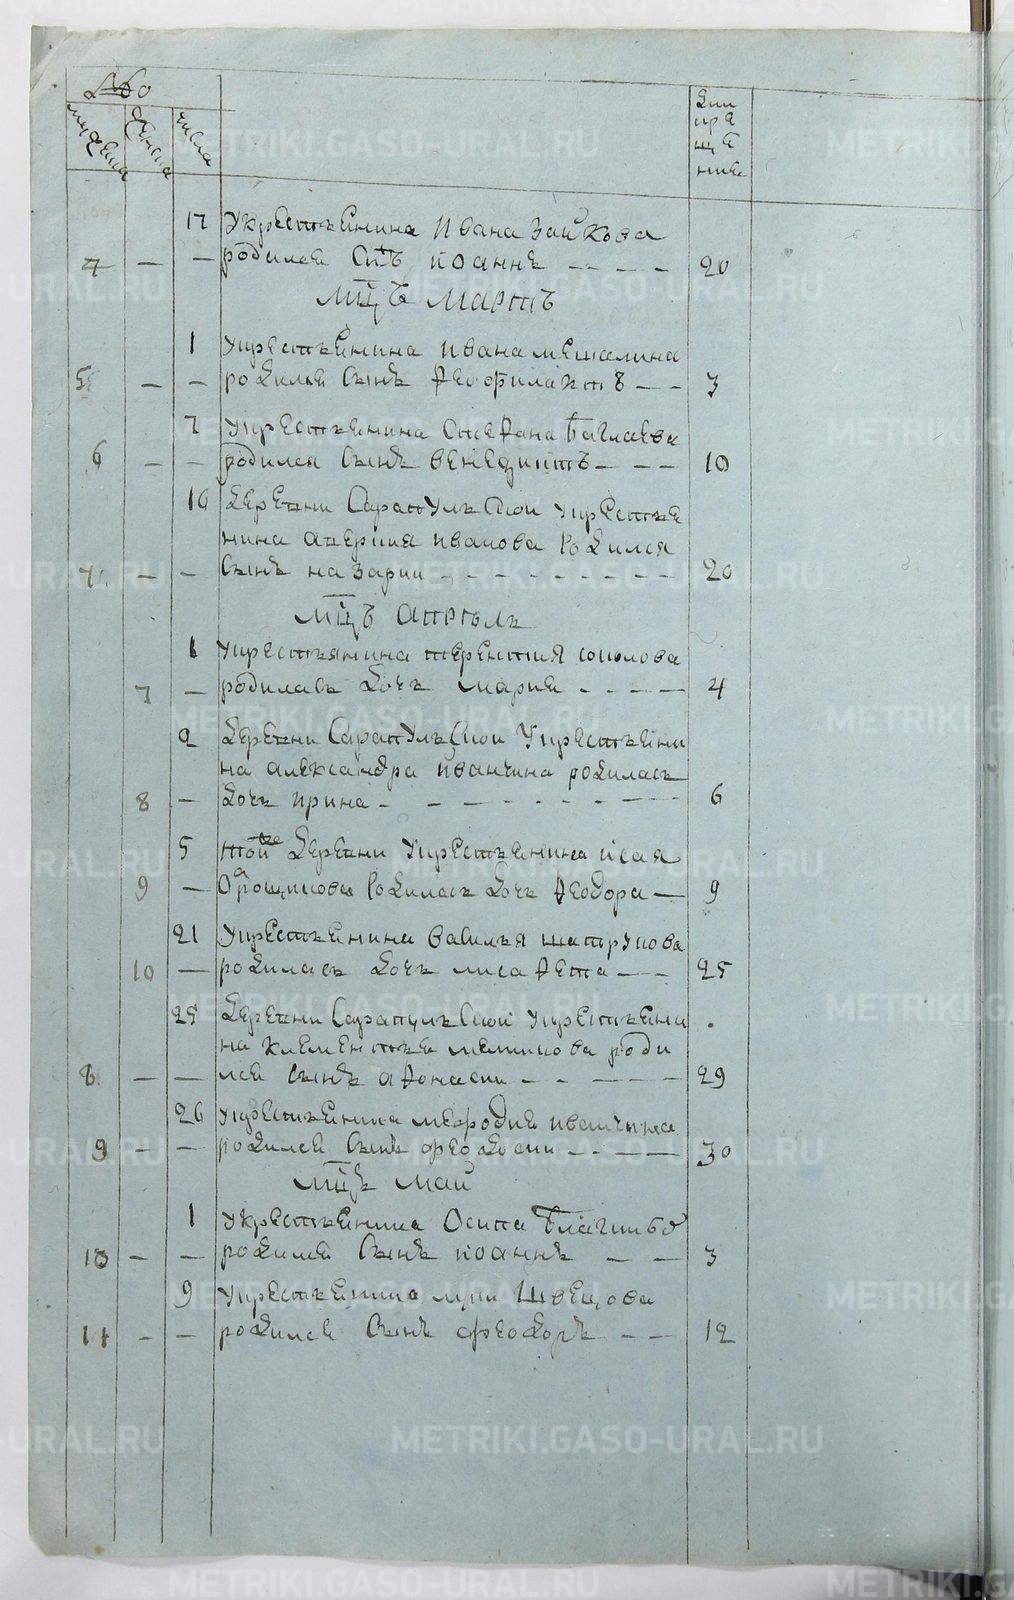 №
мужеска
женска
числа
Сии
пра
ща
ние
17 У крестьянина Ивана Зайкова
4 — — родился Снъ Иоаннъ — — — — 20
Мцъ Мартъ
1 У крестьянина Ивана мешалкина
5 — — родился Сынъ Ѳеофилактъ — — 3
7 У крестьянина Стеѳана
6 — — родился Сынъ Венедиктъ — — — 10
16 Деревни Сарапульской у крестья
нина аверкия иванова Родился
7 — — Сынъ назарии — — — — — — — — — 20
Мцъ Апрель
1 У крестьянина терентия соколова
7 — родилась дочь мария — — — — 4
2 Деревни Сарапульской У крестьяни
на александра иванчина родилась
8 — дочь ирина — — — — — — — — 6
5 той же деревни У крестьянина исая
9 — Родилась дочь Ѳеодора — 9
21 У крестьянина василья шатрукова
10 — родилась дочь елисаѳета — — — 25
25 Деревни Сарапульской У крестьяни
на клементья роди
8 — — лся Сынъ аѳонасии — — — — — 29
26 У крестьянина мефодия иванчина
9 — — родился Сынъ феодосии — — — — — 30
Мцъ Май
1 У крестьянина Осипа
10 — — родился Сынъ иоаннъ — — 3
9 У крестьянина Швецова
11 — — родился Сынъ феодоръ — — 12
METRIKI.GASO-URAL.RU